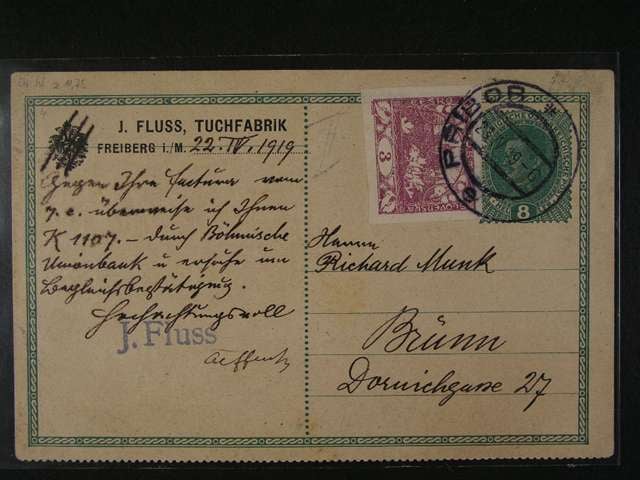 J. FLUSS, TUCHFABRIK
FREIBERG i./M. 22. IV. 1919
Gegen Ihre Factura vom
7. c. überweise ich Ihnen
K 1107.- durch Böhmische
Unionbank u ersuche um
Begleichsbestätigung.
Hochachtungsvoll
J. Fluss
PŘIBOR
3
8
Herrn
Richard Munk
Brünn
Dornichgasse 27